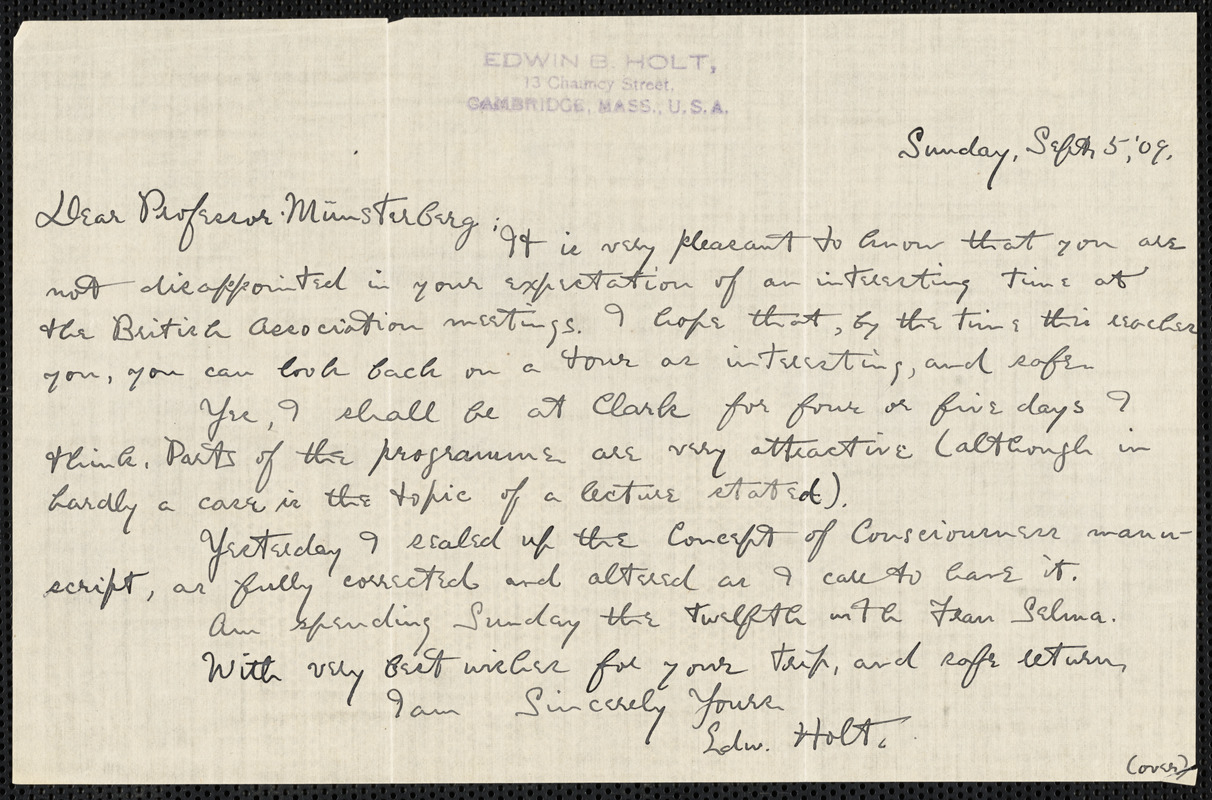 EDWIN B. HOLT,
13 Chauncy Street,
CAMBRIDGE, MASS., U.S.A.
Sunday, Sept. 5, '09.
Dear Professor Münsterberg;
It is very pleasant to know that you are
not disappointed in your expectation of an interesting time at
the British Association meetings. I hope that, by the time this reaches
you, you can look back on a tour as interesting, and safe.
Yes, I shall be at Clark for four or five days I
think. Parts of the programme are very attractive (although in
hardly a case is the topic of a lecture stated).
Yesterday I sealed up the Concept of Consciousness manu-
script, as fully corrected and altered as I care to have it.
Am spending Sunday the twelfth with Frau Selma.
With very best wishes for your trip, and safe return,
I am Sincerely Yours
Edw. Holt.
(over)